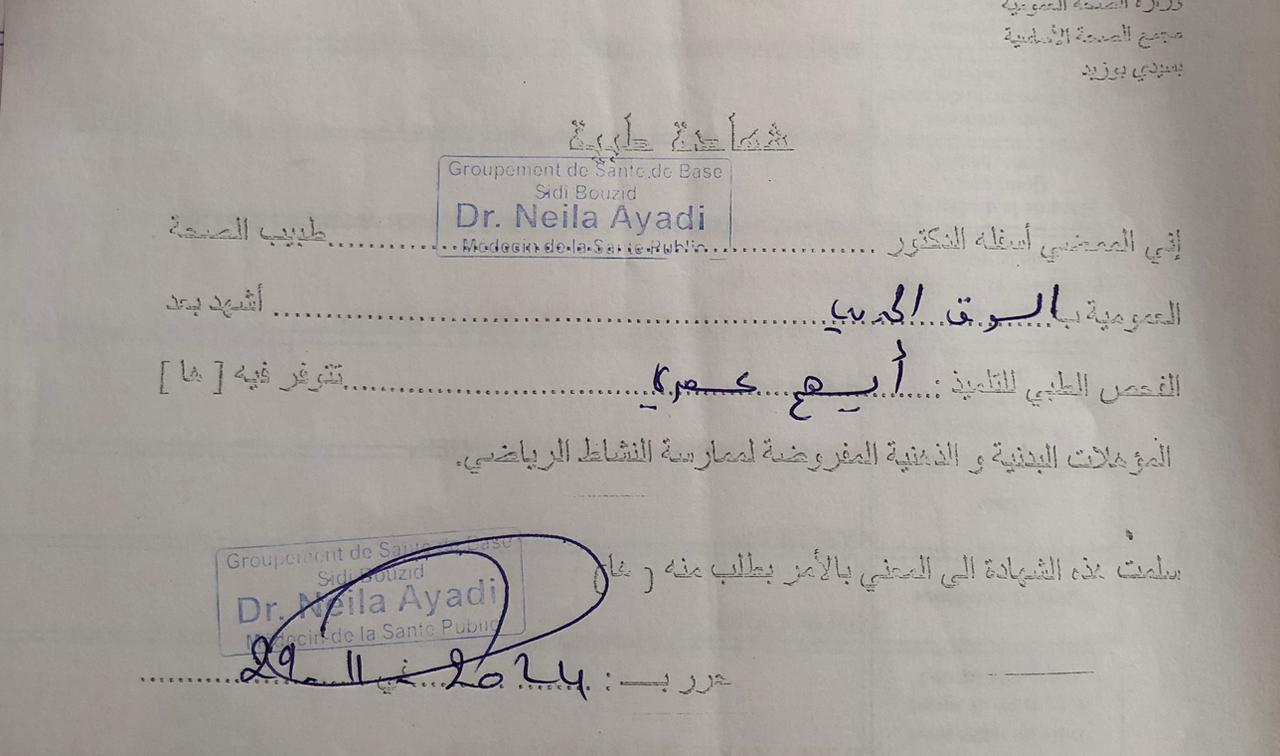 وزارة الصحة العمومية
مجمع الصحة الأساسية
بسيدي بوزيد
شهادة طبية
Groupement de Sante de Base
Sidi Bouzid
Dr. Neila Ayadi
Medecin de la Sante Public
إني الممضي أسفله الدكتور ........ طبيب الصحة
العمومية بالسوق الجديد ........ أشهد بعد
الفحص الطبي للتلميذ : ........ تتوفر فيه [ ها ]
المؤهلات البدنية و الذهنية المفروضة لممارسة النشاط الرياضي.
سلمت هذه الشهادة الى المعني بالأمر بطلب منه ( ها )
Groupement de Sante de Base
Sidi Bouzid
Dr. Neila Ayadi
Medecin de la Sante Public
حرر بـ : ........ في 29 11 2024